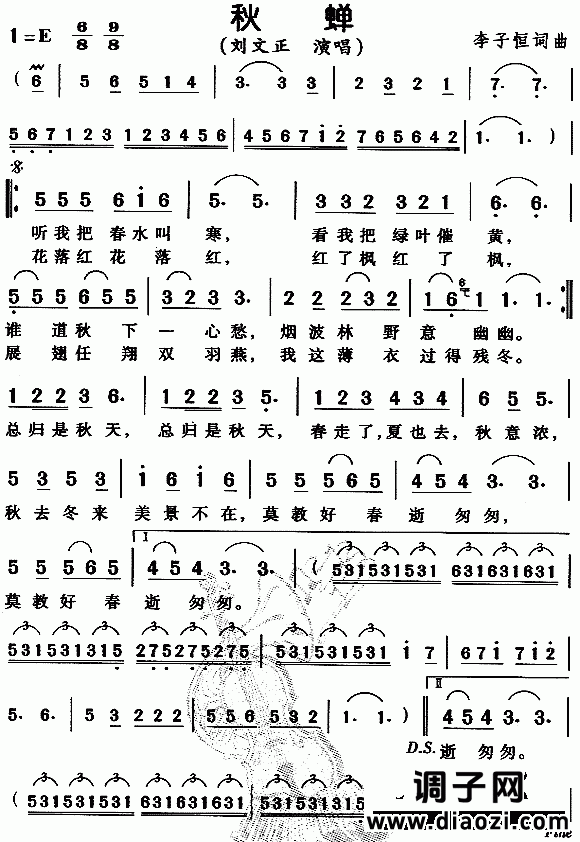 秋 蝉
1=E 6/8 9/8 (刘文正 演唱) 李子恒词曲
( 6 | 5 6 5 1 4 | 3· 3 3 | 2 3 2 1 | 7· 7· |
5 6 7 1 2 3 1 2 3 4 5 6 | 4 5 6 7 1 2 7 6 5 6 4 2 | 1· 1· )
5 5 5 6 1 6 | 5· 5· | 3 3 2 3 2 1 | 6· 6· |
听我把 春水叫 寒, 看我把 绿叶催 黄,
花落红 花 落 红, 红了枫 红 了 枫,
5 5 5 6 5 5 | 3 2 3 3· | 2 2 2 2 2 | 1 6 1 1· 1· :
谁 道秋 下 一 心愁, 烟波林 野意 幽幽。
展 翅任 翔 双 羽燕, 我这薄 衣 过得残冬。
1 2 2 3 6· | 1 2 2 3 5· | 1 2 3 4 3 4 | 6 5 5 5· |
总归是秋天, 总归是秋天, 春走了,夏也去, 秋意浓,
5 3 5 3 | 1 6 1 6 | 5 5 5 6 5 | 4 5 4 3· 3· |
秋去冬来 美景不在, 莫教好 春 逝 匆匆,
5 5 5 5 6 5 | I 4 5 4 3· 3· | ( 531531531 631631631 |
莫教好 春 逝 匆匆。
531531531531 275275275275 | 531531531531 1 7 | 6 7 1 7 1 2 |
5· 6· | 3 3 2 2 2 2 | 5 5 6 5 3 2 | 1· 1· ) | II 4 5 4 3· 3· |
D.S. 逝 匆匆。
( 531531531531 631631631631
调子网
www.diaozi.com
Fine